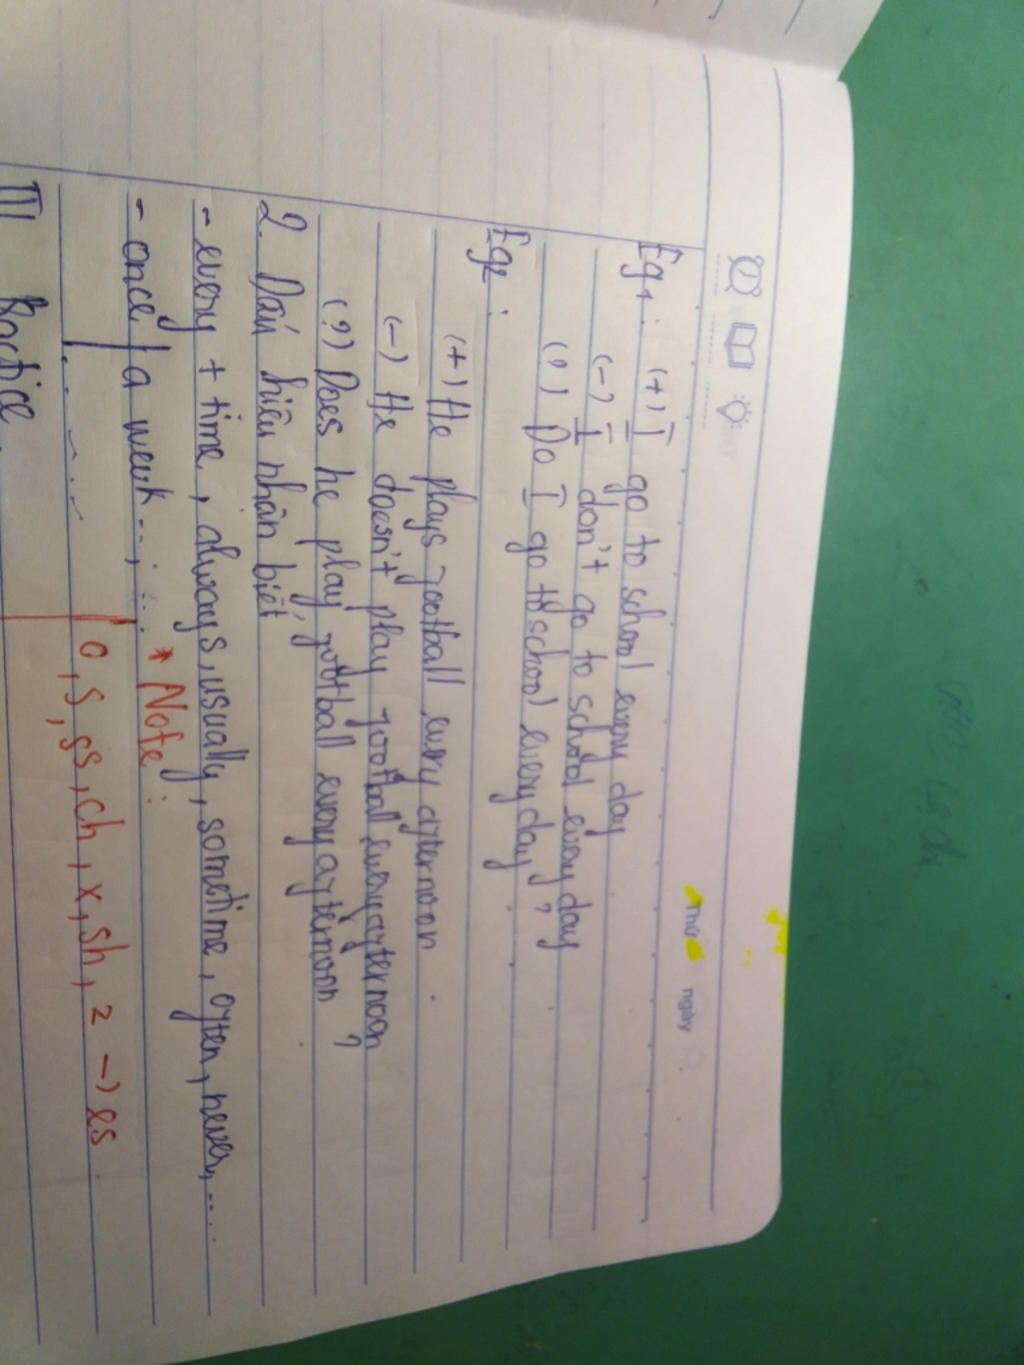 Thứ ngày
Eg1: (+) I go to school every day
(-) I don't go to school every day
(?) Do I go to school every day?
Eg2:
(+) He plays football every afternoon
(-) He doesn't play football every afternoon
(?) Does he play football every afternoon?
2. Dấu hiệu nhận biết
- every + time, always, usually, sometime, often, never,....
- once / a week..., ... * Note:
O, s, ss, ch, x, sh, z -> es
III Practice.